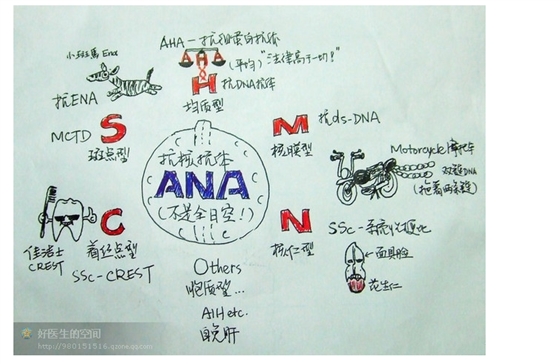 小斑馬 Ena
抗ENA
MCTD
S
斑点型
AHA-抗组蛋白抗体
(平均)"法律高于一切!"
A A
H
抗DNA抗体
均质型
M
核膜型
抗ds-DNA
Motorcycle 摩托车
双链DNA
(拖着两条链)
抗核抗体
ANA
(不是全日空!)
佳洁士
CREST
C
着丝点型
SSc-CREST
N
核仁型
SSc-系统性硬化
←面具脸
花生仁
Others
胞质型...
AIH etc.
自免肝
好医生的空间